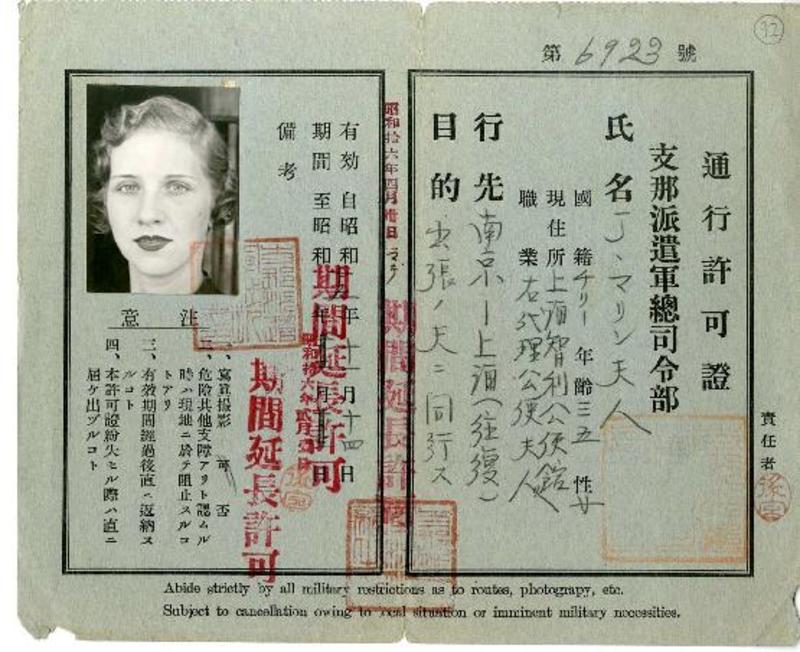 92
第 6923 號
通行許可證
支那派遣軍總司令部
氏名 J、マリン夫人
國籍 チリー 年齢 三五 性 女
現住所 上海智利公使舘
職業 右代理公使夫人
行先 南京ー上海(往復)
目的 出張ノ夫ニ同行ス
責任者
昭和拾六年四月卅日マデ
期間延長許可
有効期間 自昭和 年十一月十四日
至昭和 年 月 日
期間延長許可
昭和拾六年貳月 日
備考
期間延長許可
注意
一、寫眞撮影 可 否
二、危險其他支障アリト認ムル
時ハ現地ニ於テ阻止スルコ
トアリ
三、有效期間經過後直ニ返納ス
ルコト
四、本許可證紛失セル際ハ直ニ
届ケ出ヅルコト
Abide strictly by all military restrictions as to routes, photograpy, etc.
Subject to cancellation owing to local situation or imminent military necessities.